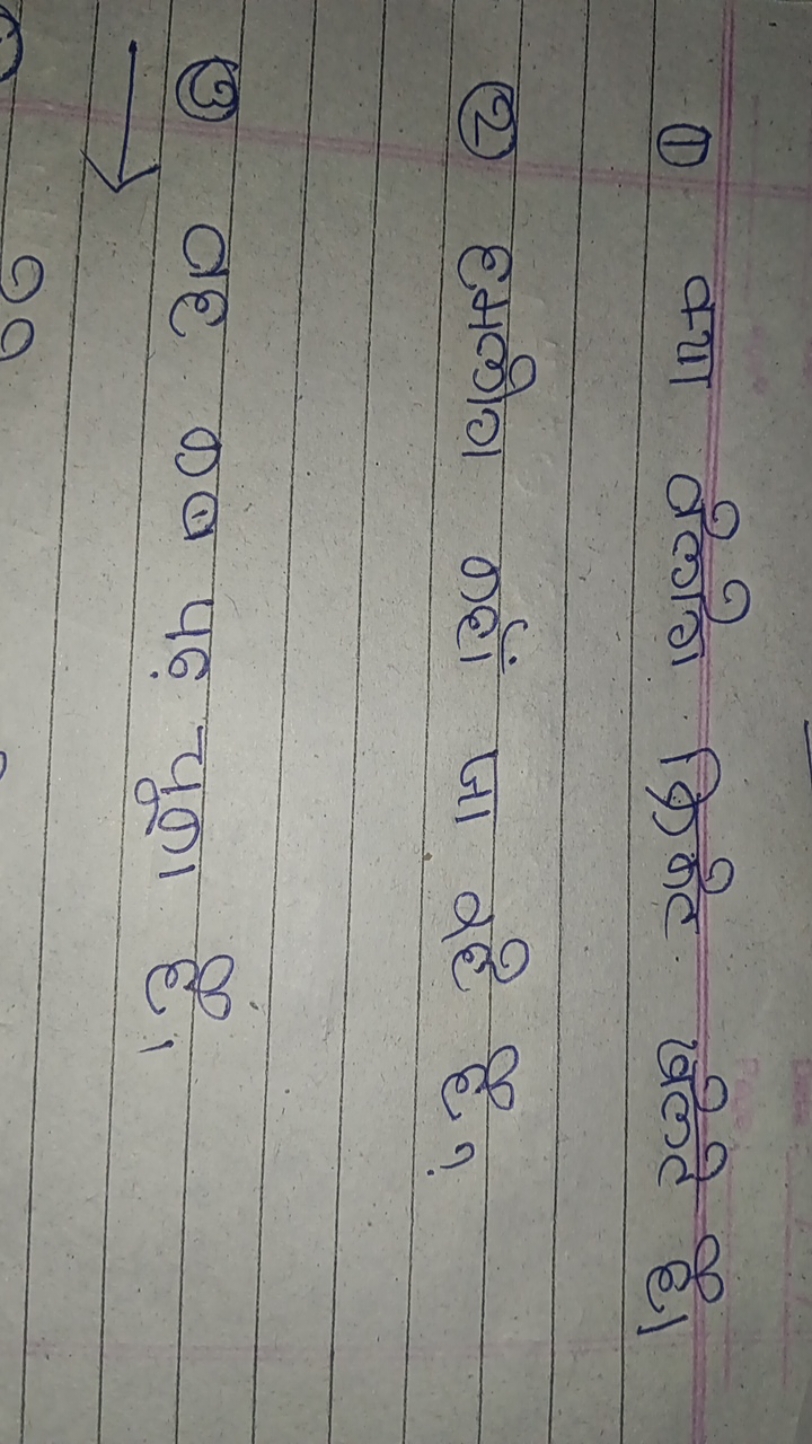 ① क्या वेलोग क्रिकेट खेलते है।
② हमलोग कहाँ जा रहे है?
③ वह कब पढ़ता है,